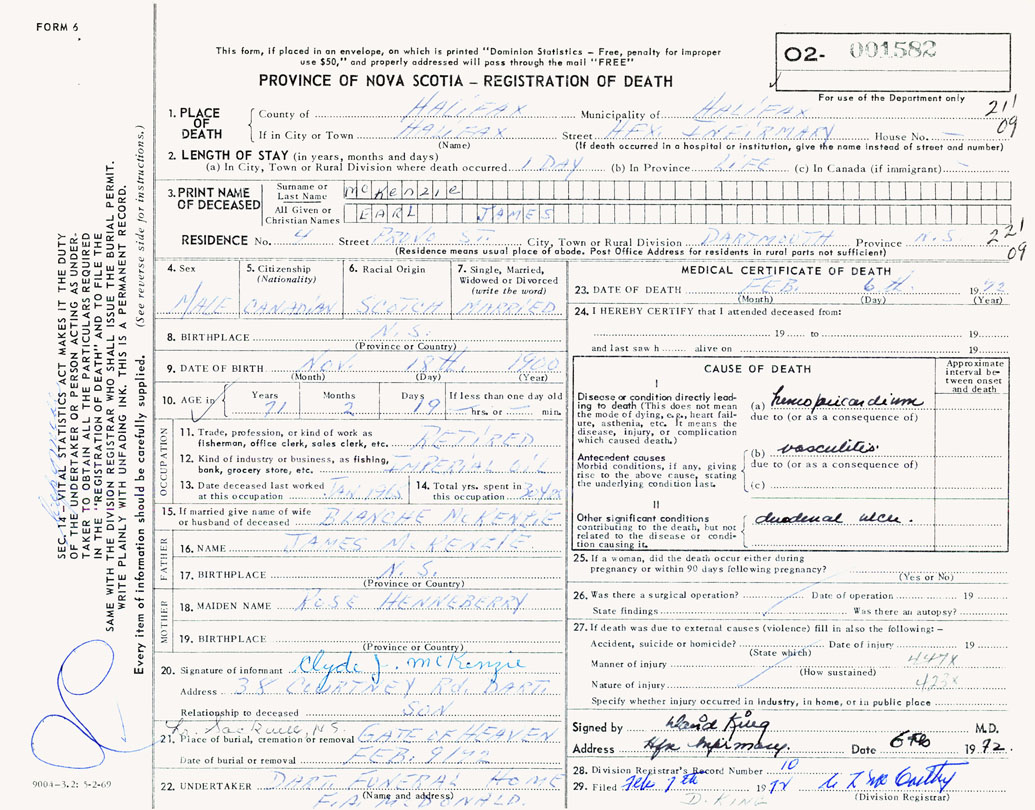 FORM 6
This form, if placed in an envelope, on which is printed "Dominion Statistics - Free, penalty for improper
use $50," and properly addressed will pass through the mail "FREE"
PROVINCE OF NOVA SCOTIA - REGISTRATION OF DEATH
O2- 001582
For use of the Department only
21'
09
1. PLACE OF DEATH
County of HALIFAX Municipality of HALIFAX
If in City or Town HALIFAX Street HFX. INFIRMARY House No. —
(Name) (If death occurred in a hospital or institution, give the name instead of street and number)
2. LENGTH OF STAY (in years, months and days)
(a) In City, Town or Rural Division where death occurred 1 DAY (b) In Province LIFE (c) In Canada (if immigrant) —
3. PRINT NAME OF DECEASED
Surname or Last Name McKenzie
All Given or Christian Names EARL JAMES
RESIDENCE No. 4 Street ST. City, Town or Rural Division DARTMOUTH Province N.S
(Residence means usual place of abode. Post Office Address for residents in rural parts not sufficient)
22'
09
4. Sex
MALE
5. Citizenship
(Nationality)
CANADIAN
6. Racial Origin
SCOTCH
7. Single, Married,
Widowed or Divorced
(write the word)
MARRIED
8. BIRTHPLACE N.S.
(Province or Country)
9. DATE OF BIRTH NOV. 18th. 1900
(Month) (Day) (Year)
10. AGE in Years Months Days If less than one day old
71 2 19 — hrs. or — min.
OCCUPATION
11. Trade, profession, or kind of work as
fisherman, office clerk, sales clerk, etc. RETIRED
12. Kind of industry or business, as fishing,
bank, grocery store, etc. IMPERIAL OIL
13. Date deceased last worked
at this occupation JAN
14. Total yrs. spent in
this occupation
15. If married give name of wife
or husband of deceased BLANCHE McKENZIE
FATHER
16. NAME JAMES McKENZIE
17. BIRTHPLACE N.S.
(Province or Country)
MOTHER
18. MAIDEN NAME ROSE HENNEBERRY
19. BIRTHPLACE
(Province or Country)
20. Signature of informant Clyde J. McKenzie
Address 38 COURTNEY Rd. DART.
Relationship to deceased SON
Sackville, N.S.
21. Place of burial, cremation or removal GATE OF HEAVEN
Date of burial or removal FEB. 9/72
22. UNDERTAKER DART. FUNERAL HOME
(Name and address)
F.A. McDONALD.
MEDICAL CERTIFICATE OF DEATH
23. DATE OF DEATH FEB. 6th. 1972
(Month) (Day) (Year)
24. I HEREBY CERTIFY that I attended deceased from:
19 to 19
and last saw h alive on 19
CAUSE OF DEATH
Approximate
interval be-
tween onset
and death
I
Disease or condition directly lead-
ing to death (This does not mean
the mode of dying, e.g., heart fail-
ure, asthenia, etc. It means the
disease, injury, or complication
which caused death.)
(a) hemopericardium
due to (or as a consequence of)
Antecedent causes
Morbid conditions, if any, giving
rise to the above cause, stating
the underlying condition last.
(b) vasculitis
due to (or as a consequence of)
(c)
II
Other significant conditions
contributing to the death, but not
related to the disease or condi-
tion causing it.
duodenal ulcer.
25. If a woman, did the death occur either during
pregnancy or within 90 days following pregnancy?
(Yes or No)
26. Was there a surgical operation? Date of operation 19
State findings Was there an autopsy?
27. If death was due to external causes (violence) fill in also the following: -
Accident, suicide or homicide? Date of injury 19
(State which)
Manner of injury 447X
(How sustained)
Nature of injury 423X
Specify whether injury occurred in industry, in home, or in public place
Signed by King M.D.
Address Hfx Infirmary. Date 6 Feb 1972.
28. Division Registrar's Record Number 10
29. Filed Feb 7th 1972
(Division Registrar)
D. KING
SEC. 14 - VITAL STATISTICS ACT MAKES IT THE DUTY
OF THE UNDERTAKER OR PERSON ACTING AS UNDER-
TAKER TO OBTAIN ALL THE PARTICULARS REQUIRED
IN THE "REGISTRATION OF DEATH" AND TO FILE THE
SAME WITH THE DIVISION REGISTRAR WHO SHALL ISSUE THE BURIAL PERMIT.
WRITE PLAINLY WITH UNFADING INK. THIS IS A PERMANENT RECORD.
Every item of information should be carefully supplied. (See reverse side for instructions.)
9004-3.2: 5-2-69